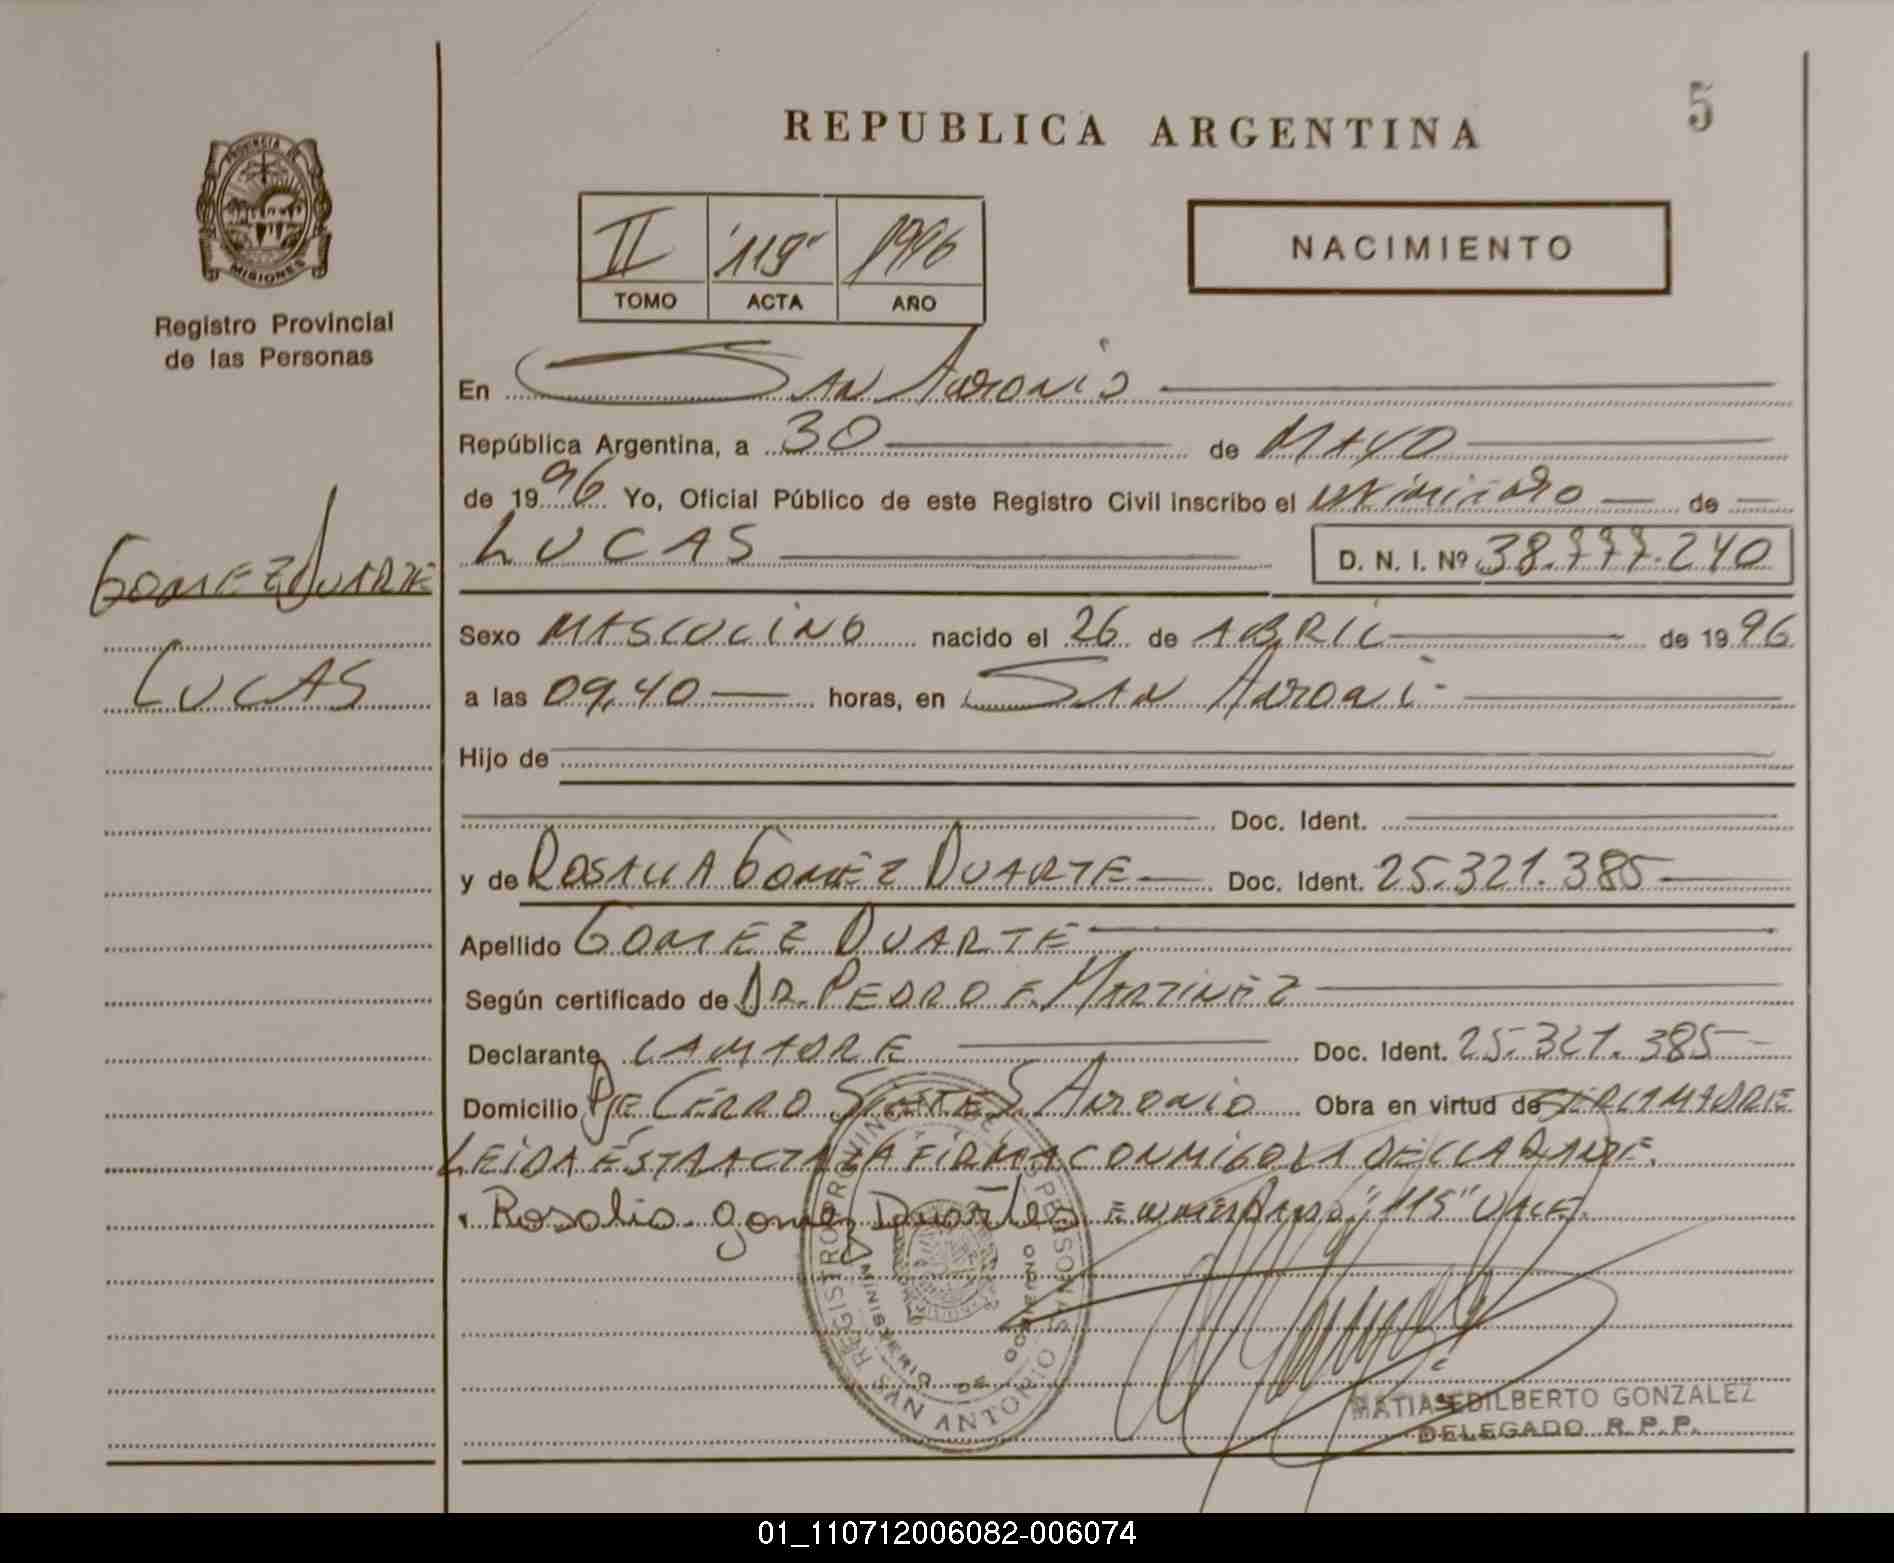 REPUBLICA ARGENTINA
5
PROVINCIA DE
MISIONES
Registro Provincial
de las Personas
II
1996
TOMO
ACTA
AÑO
NACIMIENTO
En SAN ANTONIO
República Argentina, a 30 de MAYO
de 1996 Yo, Oficial Público de este Registro Civil inscribo el de
LUCAS
D. N. I. Nº 38.777.240
GOMEZ DUARTE
LUCAS
Sexo MASCULINO nacido el 26 de ABRIL de 1996
a las 09,40 horas, en SAN
Hijo de
Doc. Ident.
y de ROSALIA GOMEZ DUARTE Doc. Ident. 25.321.385
Apellido GOMEZ DUARTE
Según certificado de DR. PEDRO F. MARTINEZ
Declarante LA MADRE Doc. Ident. 25.321.385
Domicilio CERRO S. ANTONIO Obra en virtud de SER LA MADRE
LEIDA ESTA ACTA LA FIRMA CONMIGO LA DECLARANTE.
Rosalia Gomez Duarte ENMENDADO VALE.
REGISTRO PROVINCIAL DE LAS PERSONAS
MINISTERIO DE GOBIERNO
SAN ANTONIO
MATIAS EDILBERTO GONZALEZ
DELEGADO R.P.P.
01_110712006082-006074